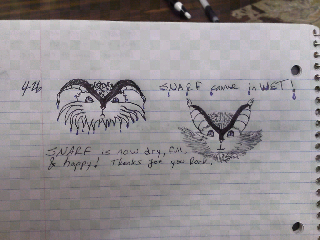 4-26
SNARF came in WET!
SNARF is now dry, full,
& happy! Thanks for you look.